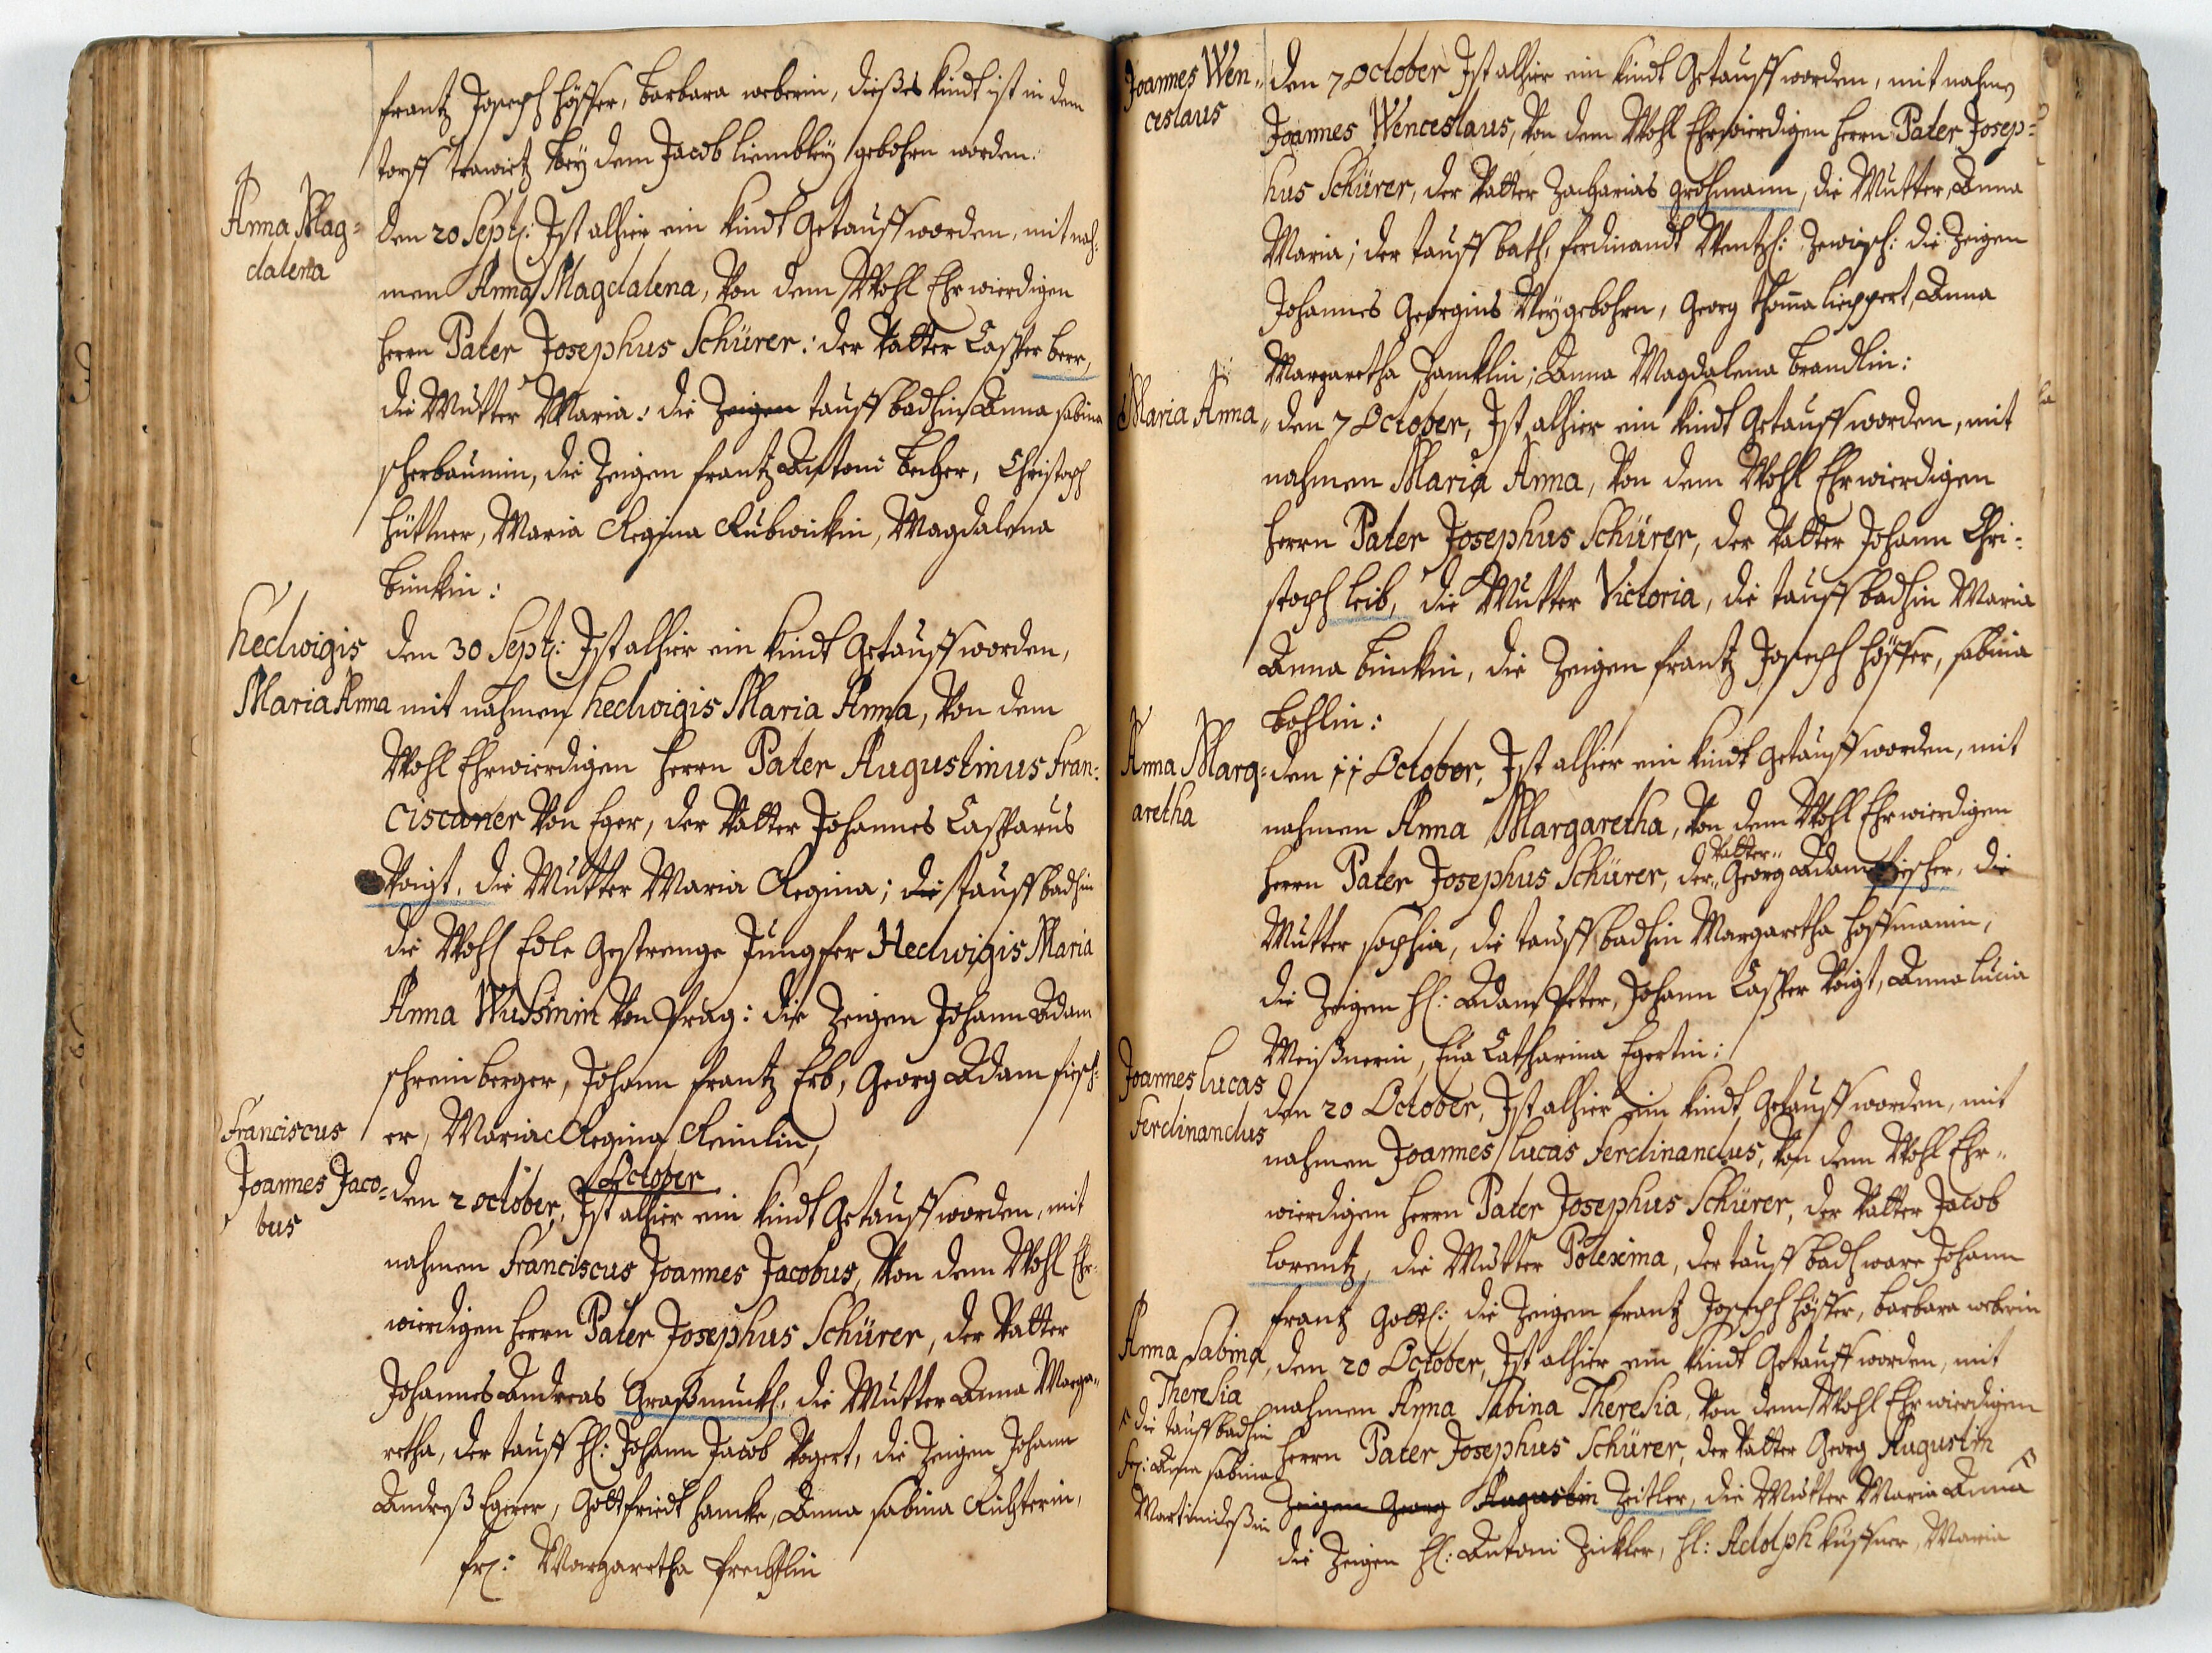 frantz Joseph Höffer, Barbara weberin, dießes Kindt ist in dem
torff trawitz bey dem Jacob liembley gebohrn worden:
Anna Mag=
dalena
den 20 Sept: Ist alhier ein Kindt Getaufft worden, mit nah=
men Anna Magdalena, Von dem Wohl Ehrwierdigen
Herrn Pater Josephus Schürer: der Vatter Casper berr,
die Mutter Maria: die Zeigen tauff badhin Anna sabina
scherbaumin, die Zeigen frantz Antoni becher, Christoph
Hüttner, Maria Regina Rubwickin, Magdalena
binckin:
Hedwigis
Maria Anna
den 30 Sept: Ist alhier ein Kindt Getaufft worden,
mit nahmen Hedwigis Maria Anna, Von dem
Wohl Ehrwierdigen Herrn Pater Augustinus Fran:
ciscaner Von Eger, der Vatter Johannes Casparus
Voigt, die Mutter Maria Regina; die tauff badhin
die Wohl Edle Gestrenge Jungfer Hedwigis Maria
Anna Wussinin Von Prag: die Zeigen Johann Adam
schreinberger, Johann frantz Erb, Georg Adam fisch=
er, Maria Regina Reimlin,
October
Franciscus
Joannes Jaco=
bus
den 2 october, Ist alhier ein Kindt Getaufft worden, mit
nahmen Franciscus Joannes Jacobus, Von dem Wohl Ehr=
wierdigen Herrn Pater Josephus Schürer, der Vatter
Johannes Andreas Graßmuckh, die Mutter Anna Marga=
retha, der tauff H: Johann Jacob Vogert, die Zeigen Johann
Andreß Egerer, Gottfriedt Hancke, Anna sabina Richterin,
fr: Margaretha Prechtlin
Joannes Wen=
ceslaus
den 7 October Ist alhier ein Kindt Getaufft worden, mit nahme
Joannes Wenceslaus, Von dem Wohl Ehrwierdigen Herrn Pater Josep=
hus Schürer, der Vatter Zacharias Grohmann, die Mutter Anna
Maria; der tauff bath, ferdinandt Wentzl: die Zeigen
Johannes Georgius Neygebohrn, Georg Thoma lieppert, Anna
Margaretha Hancklin; Anna Magdalena brandlin:
Maria Anna
den 7 October, Ist alhier ein Kindt Getaufft worden, mit
nahmen Maria Anna, Von dem Wohl Ehrwierdigen
Herrn Pater Josephus Schürer, der Vatter Johann Chri=
stoph leib, die Mutter Victoria, die tauff badhin Maria
Anna binckin, die Zeigen frantz Joseph Höffer, sabina
bohlin:
Anna Marg=
aretha
den 11 October, Ist alhier ein Kindt getaufft worden, mit
nahmen Anna Margaretha, Von dem Wohl Ehrwierdigen
Herrn Pater Josephus Schürer, der Vatter Georg Adam fischer, die
Mutter sophia, die tauff badhin Margaretha Hoffmanin,
die Zeigen H: Adam Peter, Johann Casper Voigt, Anna lucia
Meißnerin, Eva Catharina Egertin:
Joannes Lucas
Ferdinandus
den 20 October, Ist alhier ein Kindt Getaufft worden, mit
nahmen Joannes Lucas Ferdinandus, Von dem Wohl Ehr=
wierdigen Herrn Pater Josephus Schürer, der Vatter Jacob
lorentz, die Mutter Polexima, der tauff badh ware Johann
frantz Gottl: die Zeigen frantz Joseph Höffer, barbara weberin
Anna Sabina
Theresia
den 20 October, Ist alhier ein Kindt Getaufft worden, mit
nahmen Anna Sabina Theresia, Von dem Wohl Ehrwierdigen
Herrn Pater Josephus Schürer, der Vatter Georg Augustin
Zeigen Georg Augustin Zeitler, die Mutter Maria Anna
die tauff badhin
fr: Anna sabina
Martindeßin
die Zeigen H: Antoni Zickler, H: Adolph Küffner, Maria